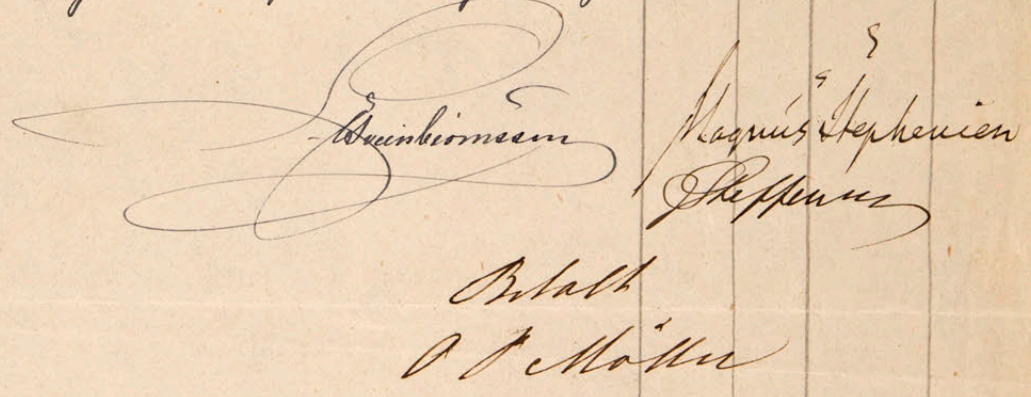 Sveinbiornsson
Magnús Stephensen
Betalt
O P Möller